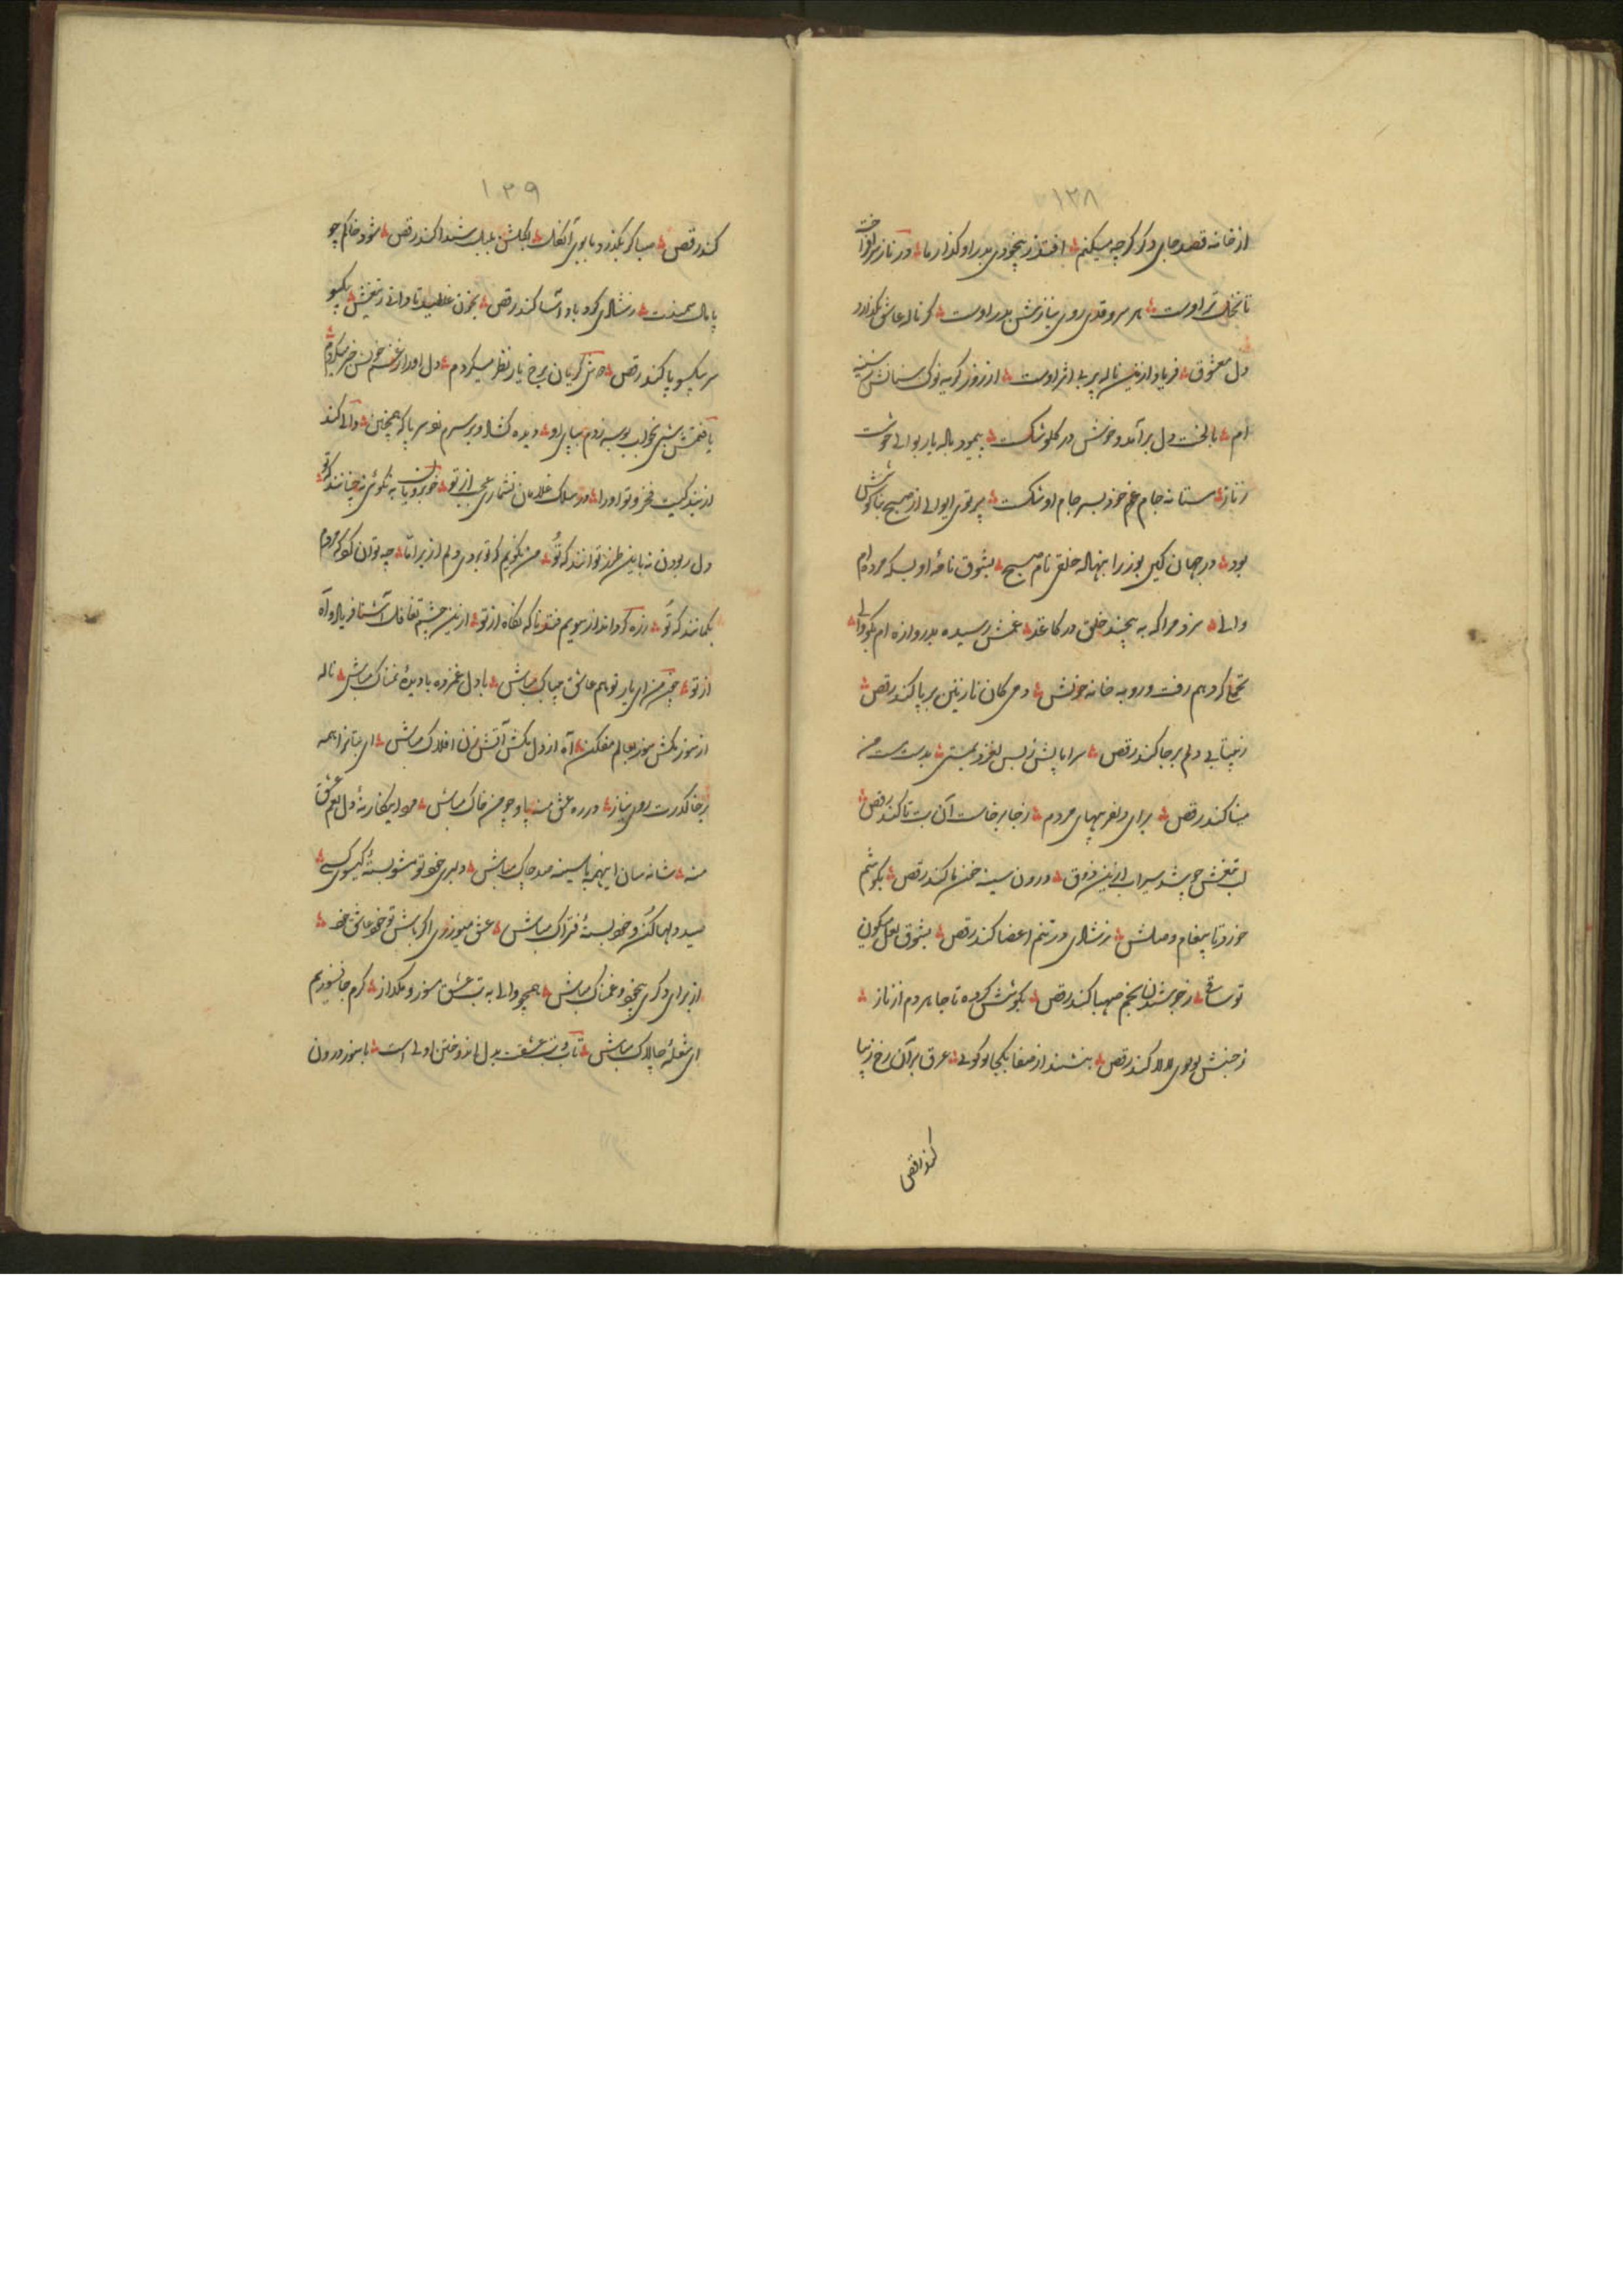 ۱۲۸
از خانه قصد جای دگر گرچه میکنم ؞ افتد ز بیخودی بدر او گذار ما ؞ در ناز سرافراخت
تا نخل تر اوست ؞ هر سرو قدی روی نیازش بدر اوست ؞ گر ناله عاشق نگدازد
دل معشوق ؞ فریاد ازین ناله پر بی اثر اوست ؞ از زور گریه نوک سنانش بسینه
ام ؞ با لخت دل برآمد و خونش در گلو شکست ؞ پیمود باله یار بوالی خوشت
ز ناز ؞ مستانه جام غم خود بسر جام او شکست ؞ پرتوی ایوالی از صبح بناگوشش
بود ؞ در جهان کین روز را بنهاده خلق نام صبح ؞ بشوق نامهٔ او بسکه مرده ام
والی ؞ سزد مرا که به پیچند خلق در کاغذ ؞ غمش رسیده بدروازه ام بگو والی ؞
تحمل کردم رفت و رو به خانه خویش ؞ دمی کان نازنین برپا کند رقص ؞
ز بیتابی دلم برجا کند رقص ؞ سراپایش ز بس لغزد بمستی ؞ بدست مست من
مینا کند رقص ؞ برای دلفریبهای مردم ؞ ز جا برخاست آن بت تا کند رقص ؞
لب تیغش چو شد سیراب ازین ذوق ؞ درون سینه خون ما کند رقص ؞ بگوشم
خورد تا پیغام وصلش ؞ ز شادی در تنم اعضا کند رقص ؞ بشوق لعل میگون
تو ساقی ؞ ز جوشیدن بخم صهبا کند رقص ؞ بگوشش کرده تا جا هر دم از ناز ؞
ز جنبش لولوی لالا کند رقص ؞ ننشیند از صفا یکجا تو گوئی ؞ عرق بر آن رخ زیبا
کند رقص
۱۲۹
کند رقص ؞ صبا گر بگذرد با بوی آنگل ؞ بگلشن بلبل شیدا کند رقص ؞ شود خاکم چو
پامال سمندت ؞ ز شادی گرد باد آسا کند رقص ؞ بخون غلطید تا والی ز تیغش ؞ بیکسو
سر بیکسو پا کند رقص ؞ دوش گریان برخ یار نظر میکردم ؞ دل او را ز غم خویش خبر میکردم ؞
یافتمش شبی بخواب بوسه زدم بپای او ؞ دیده گشاد و بر سرم زد سر پا که همچنین ؞ والی کند
از بندگیت فخر و تو او را ؞ در سلک غلامان نشماری عجب از تو ؞ خوبرویان به نکوئی نه چنانند که تو ؞
دل ربودن نه باین طرز توانند که تو ؞ من نگویم که تو بردی دلم از بر اما ؞ چه توان کرد که مردم
بگمانند که تو ؞ رزه کرد انداز سویم فتد ناگه نگاه از تو ؞ ازین چشم تغافل آشنا فریاد و آه
از تو ؞ چون من ای یار تو هم عاشق چالاک مباش ؞ با دل غمزده با دیدهٔ نمناک مباش ؞ ناله
از سوز مکش سوز بعالم مفکن ؞ آه از دل مکش آتش زن افلاک مباش ؞ ای بتانرا همه
بر خاک درت روی نیاز ؞ در ره عشق منه پا و چو من خاک مباش ؞ مرد اینکار نهٔ دل بغم عشق
منه ؞ شانه سان اینهمه با سینه صد چاک مباش ؞ دلبری خو تو مشو بستهٔ گیسوی کسی ؞
صید دلها کن و خود بستهٔ فتراک مباش ؞ عشق میورزی اگر باش تو خود عاشق خود ؞
از برای دگری بیخود و غمناک مباش ؞ همچو والی به تب عشق بسوز و مگداز ؞ گرم جانسوزیم
ای شعلهٔ چالاک مباش ؞ تاب و تب عشقت بدل اندوختن اولی است ؞ با سوز درون